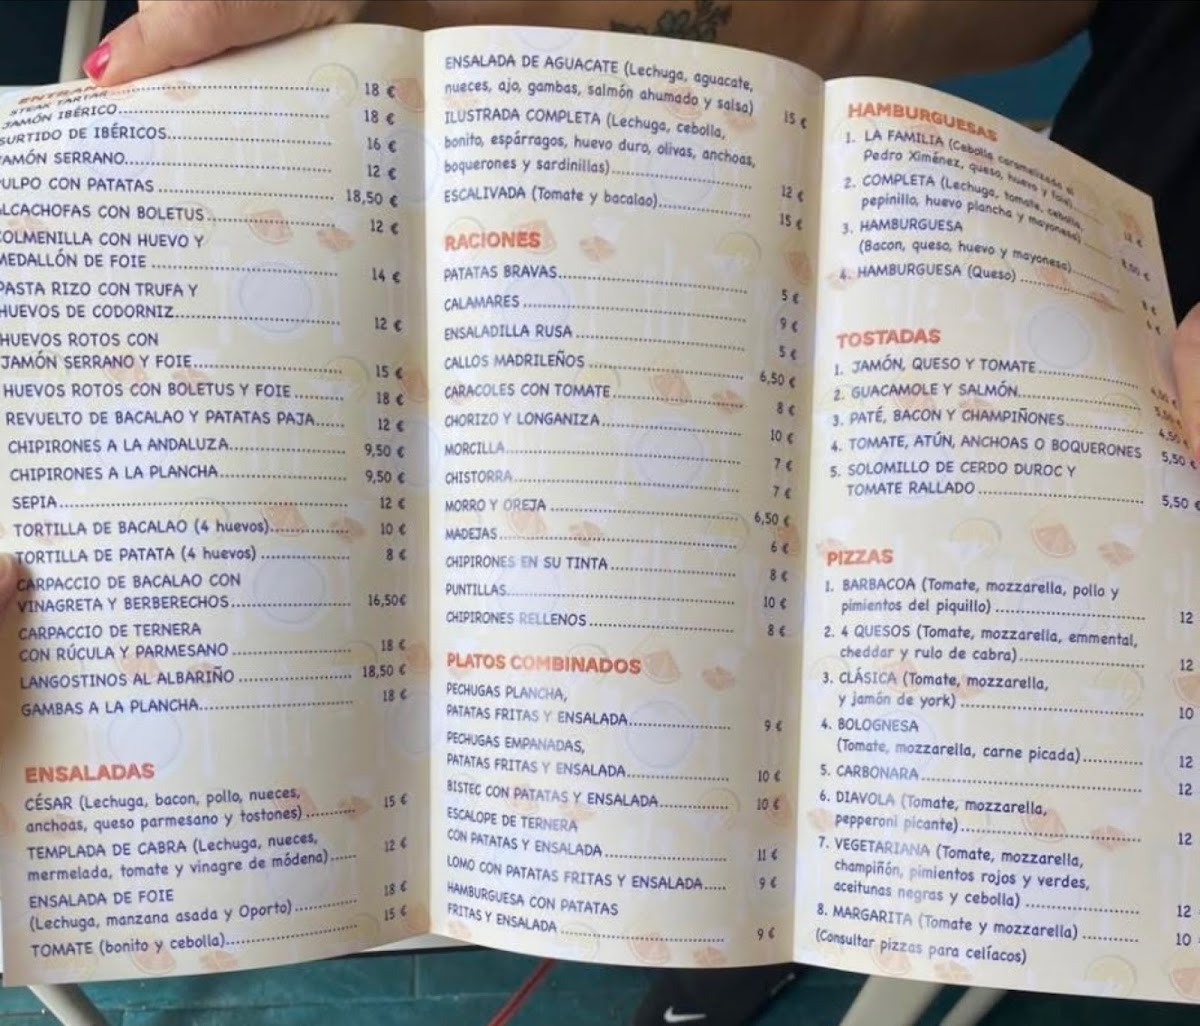 ENTRAN
STEAK TARTAR.......... 18 €
JAMÓN IBÉRICO.......... 18 €
SURTIDO DE IBÉRICOS.......... 16 €
JAMÓN SERRANO.......... 12 €
PULPO CON PATATAS .......... 18,50 €
ALCACHOFAS CON BOLETUS.......... 12 €
COLMENILLA CON HUEVO Y
MEDALLÓN DE FOIE .......... 14 €
PASTA RIZO CON TRUFA Y
HUEVOS DE CODORNIZ.......... 12 €
HUEVOS ROTOS CON
JAMÓN SERRANO Y FOIE.......... 15 €
HUEVOS ROTOS CON BOLETUS Y FOIE .......... 18 €
REVUELTO DE BACALAO Y PATATAS PAJA...... 12 €
CHIPIRONES A LA ANDALUZA.......... 9,50 €
CHIPIRONES A LA PLANCHA.......... 9,50 €
SEPIA.......... 12 €
TORTILLA DE BACALAO (4 huevos).......... 10 €
TORTILLA DE PATATA (4 huevos) .......... 8 €
CARPACCIO DE BACALAO CON
VINAGRETA Y BERBERECHOS.......... 16,50€
CARPACCIO DE TERNERA
CON RÚCULA Y PARMESANO .......... 18 €
LANGOSTINOS AL ALBARIÑO .......... 18,50 €
GAMBAS A LA PLANCHA.......... 18 €
ENSALADAS
CÉSAR (Lechuga, bacon, pollo, nueces,
anchoas, queso parmesano y tostones) .......... 15 €
TEMPLADA DE CABRA (Lechuga, nueces,
mermelada, tomate y vinagre de módena)...... 12 €
ENSALADA DE FOIE
(Lechuga, manzana asada y Oporto).......... 18 €
TOMATE (bonito y cebolla).......... 15 €
ENSALADA DE AGUACATE (Lechuga, aguacate,
nueces, ajo, gambas, salmón ahumado y salsa) 15 €
ILUSTRADA COMPLETA (Lechuga, cebolla,
bonito, espárragos, huevo duro, olivas, anchoas,
boquerones y sardinillas).......... 12 €
ESCALIVADA (Tomate y bacalao).......... 15 €
RACIONES
PATATAS BRAVAS.......... 5 €
CALAMARES .......... 9 €
ENSALADILLA RUSA .......... 5 €
CALLOS MADRILEÑOS .......... 6,50 €
CARACOLES CON TOMATE .......... 8 €
CHORIZO Y LONGANIZA.......... 10 €
MORCILLA.......... 7 €
CHISTORRA.......... 7 €
MORRO Y OREJA .......... 6,50 €
MADEJAS.......... 6 €
CHIPIRONES EN SU TINTA .......... 8 €
PUNTILLAS.......... 10 €
CHIPIRONES RELLENOS .......... 8 €
PLATOS COMBINADOS
PECHUGAS PLANCHA,
PATATAS FRITAS Y ENSALADA.......... 9 €
PECHUGAS EMPANADAS,
PATATAS FRITAS Y ENSALADA.......... 10 €
BISTEC CON PATATAS Y ENSALADA.......... 10 €
ESCALOPE DE TERNERA
CON PATATAS Y ENSALADA .......... 11 €
LOMO CON PATATAS FRITAS Y ENSALADA..... 9 €
HAMBURGUESA CON PATATAS
FRITAS Y ENSALADA .......... 9 €
HAMBURGUESAS
1. LA FAMILIA (Cebolla caramelizada al
Pedro Ximénez, queso, huevo y foie)..........
2. COMPLETA (Lechuga, tomate, cebolla,
pepinillo, huevo plancha y mayonesa) ..........
3. HAMBURGUESA
(Bacon, queso, huevo y mayonesa)..........
4. HAMBURGUESA (Queso) ..........
TOSTADAS
1. JAMÓN, QUESO Y TOMATE..........
2. GUACAMOLE Y SALMÓN..........
3. PATÉ, BACON Y CHAMPIÑONES.......... 4,50
4. TOMATE, ATÚN, ANCHOAS O BOQUERONES 5,50 €
5. SOLOMILLO DE CERDO DUROC Y
TOMATE RALLADO .......... 5,50 €
PIZZAS
1. BARBACOA (Tomate, mozzarella, pollo y
pimientos del piquillo) .......... 12
2. 4 QUESOS (Tomate, mozzarella, emmental,
cheddar y rulo de cabra).......... 12
3. CLÁSICA (Tomate, mozzarella,
y jamón de york) .......... 10
4. BOLOGNESA
(Tomate, mozzarella, carne picada).......... 12
5. CARBONARA .......... 12
6. DIAVOLA (Tomate, mozzarella,
pepperoni picante).......... 12
7. VEGETARIANA (Tomate, mozzarella,
champiñón, pimientos rojos y verdes,
aceitunas negras y cebolla) .......... 12
8. MARGARITA (Tomate y mozzarella) .......... 10
(Consultar pizzas para celíacos)